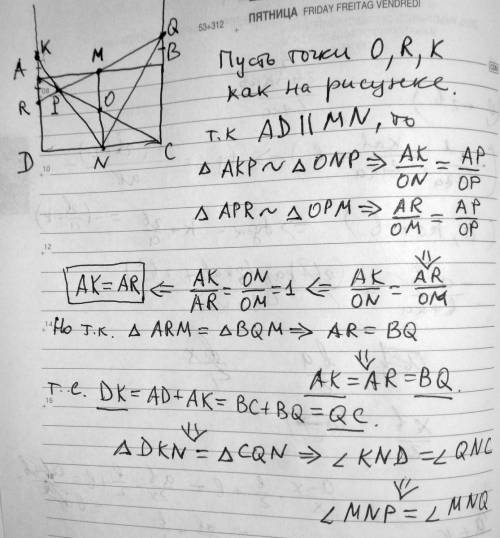 53÷312
ПЯТНИЦА FRIDAY FREITAG VENDREDI
K
M
Q
B
A
R
P
O
D
N
C
Пусть точки O, R, K
как на рисунке.
т.к AD || MN, то
△ AKP ~ △ ONP ⇒ AK/ON = AP/OP
△ APR ~ △ OPM ⇒ AR/OM = AP/OP
⇓
AK = AR ⇐ AK/AR = ON/OM = 1 ⇐ AK/ON = AR/OM
Но т.к. △ ARM = △ BQM ⇒ AR = BQ
⇓
AK = AR = BQ.
т.е. DK = AD + AK = BC + BQ = QC.
⇓
△ DKN = △ CQN ⇒ ∠ KND = ∠ QNC
⇓
∠ MNP = ∠ MNQ
10
12
14
16
18